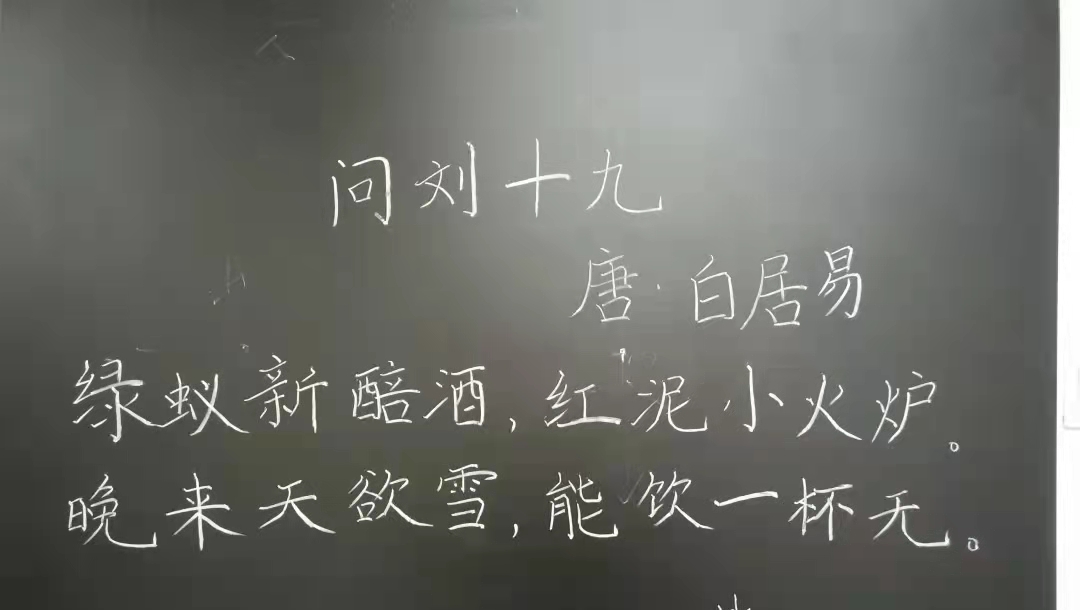 问刘十九
唐·白居易
绿蚁新醅酒，红泥小火炉。
晚来天欲雪，能饮一杯无。